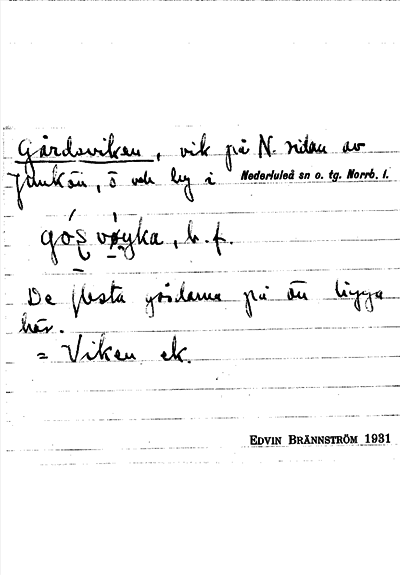 Gårdsviken, vik på N. sidan av
Junkön, ö och by i Nederluleå sn o. tg. Norrb. l.
góṣ vǿyka, b. f.
De flesta gårdarna på ön ligga
här.
= Viken ek.
EDVIN BRÄNNSTRÖM 1931